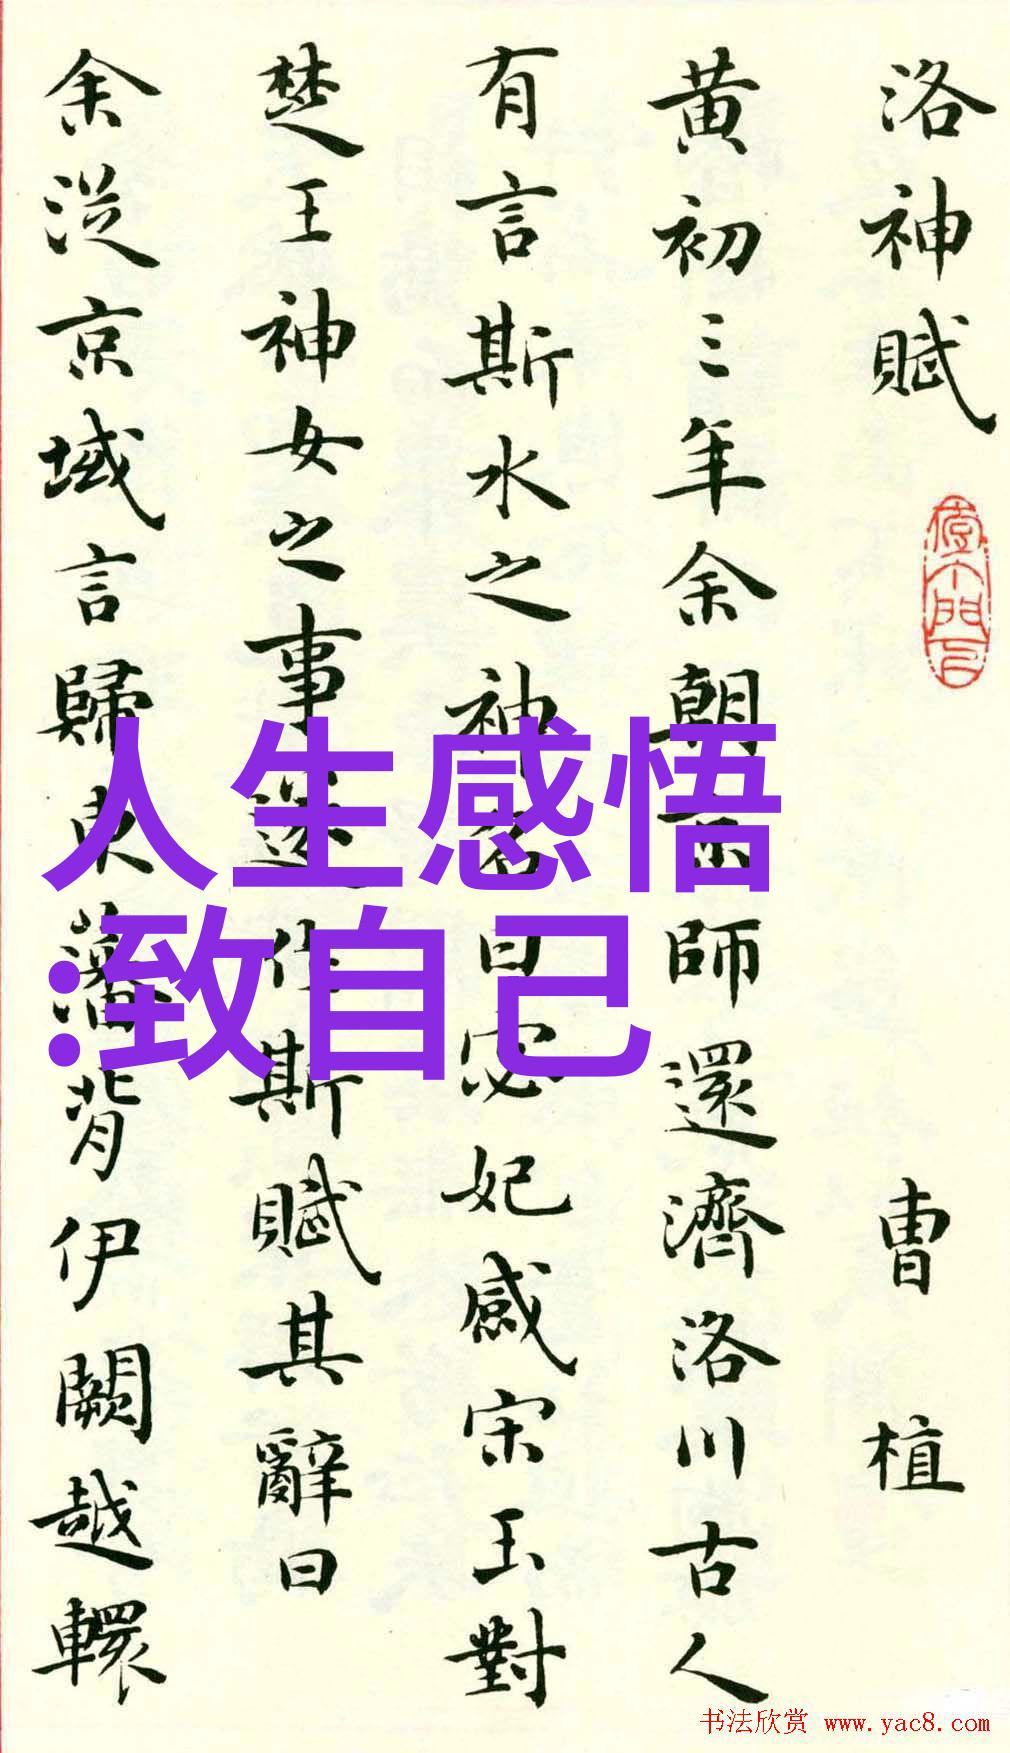 洛神賦
曹植
黄初三年余朝京師還濟洛川古人
有言斯水之神名曰宓妃感宋玉對
楚王神女之事遂作斯賦其辭曰
余従京域言歸東藩背伊闕越轘
人生感悟
:致自己
书法欣赏 www.yac8.com